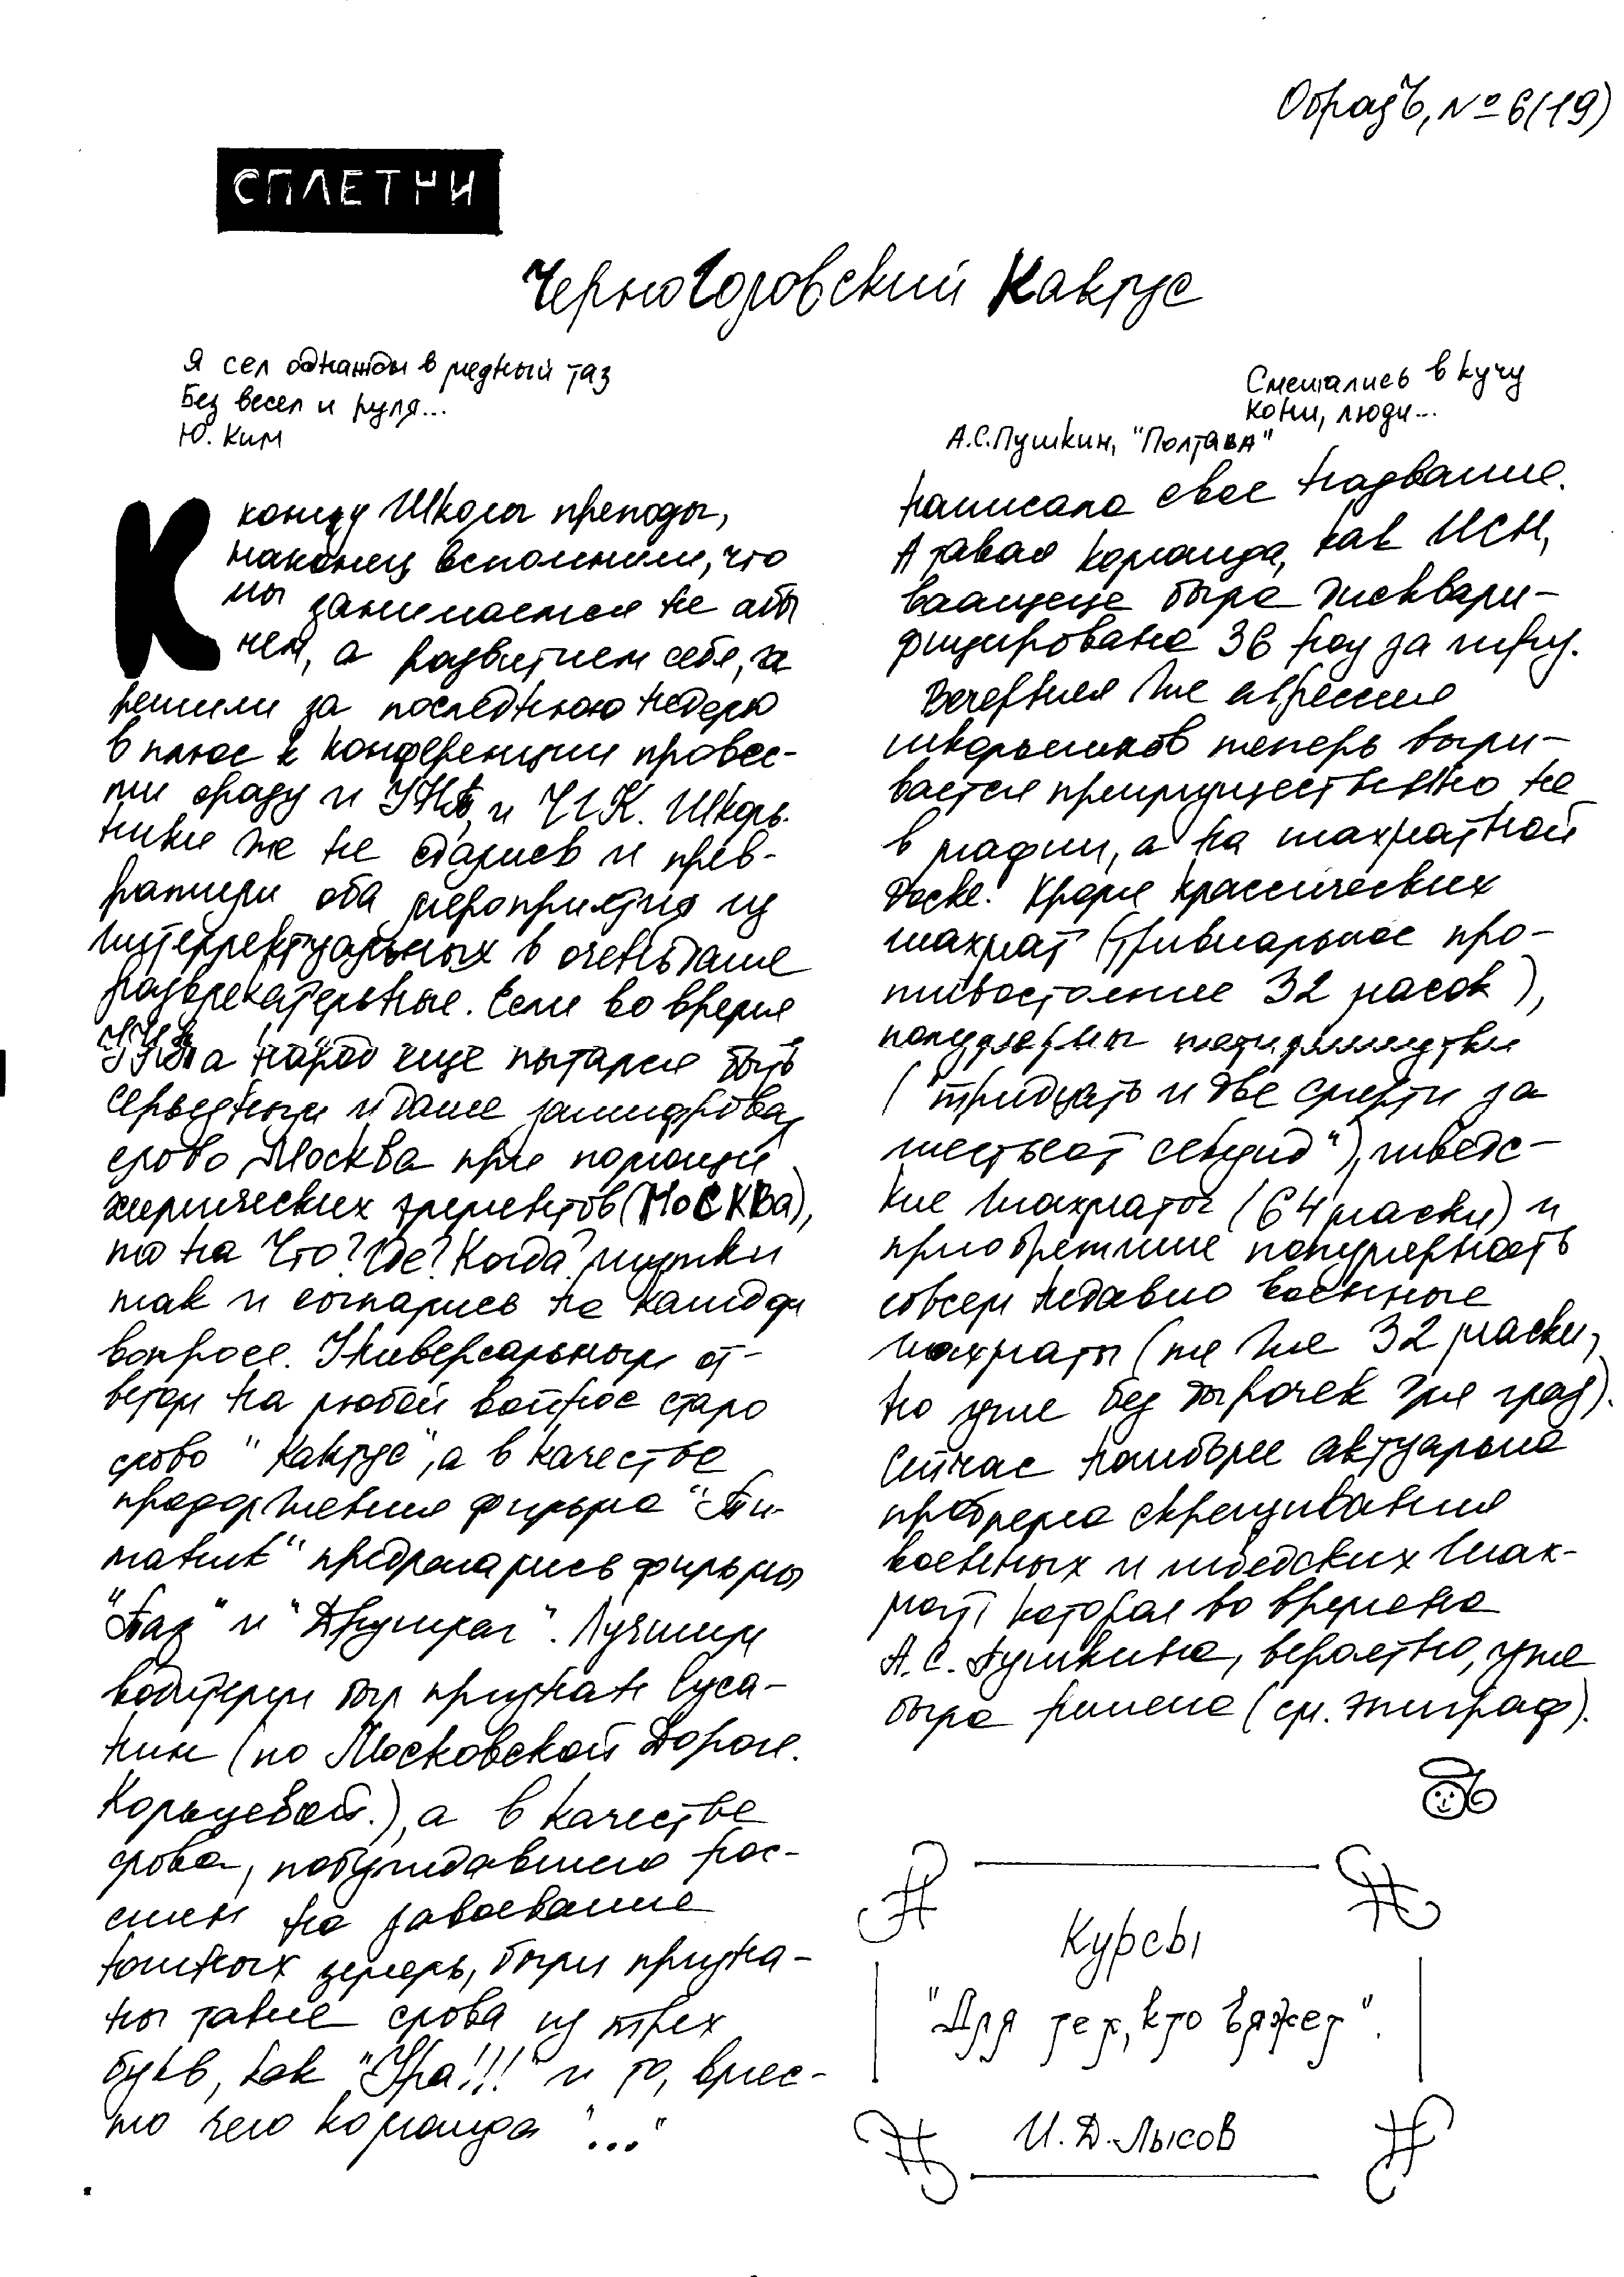 Образъ, № 6(19)
СПЛЕТНИ
Черноголовский Кактус
Я сел однажды в медный таз
Без весел и руля...
Ю. Ким
Смешались в кучу
кони, люди...
А.С.Пушкин, "Полтава"
К
концу Школы преподы,
наконец вспомнили, что
мы занимаемся не абы
чем, а развитием себя, и
решили за последнюю неделю
в плюс к конференции провес-
ти сразу и и ЧГК. Школь-
ники же не сдались и прев-
ратили оба мероприятия из
интеллектуальных в очень даже
развлекательные. Если во время
народ еще пытался быть
серьезным и даже зашифровал
слово Москва при помощи
химических элементов (МоСКВа),
то на Что? Где? Когда? шутки
так и сыпались на каждом
вопросе. Универсальным от-
ветом на любой вопрос стало
слово "Кактус", а в качестве
продолжения фильма "Ти-
таник" предлагались фильмы
"Таз" и "Дуршлаг". Лучшим
водителем был признан Суса-
нин (по Московской Дороге.
Кольцевой.), а в качестве
слова, побуждавшего рос-
сиян на завоевание
южных земель, были призна-
ны такие слова из трех
букв, как "Ура!!!" и то, вмес-
то чего команда "..."
написала свое название.
А такая команда, как ИСН,
ваащеще была дисквали-
фицирована 36 раз за игру.
Вечерняя же агрессия
школьников теперь выли-
вается преимущественно не
в мафии, а на шахматной
доске. Кроме классических
шахмат (тривиальное про-
тивостояние 32 масок),
популярны пятиминутки
("тридцать и две смерти за
шестьсот секунд"), шведс-
кие шахматы (64 маски) и
приобретшие популярность
совсем недавно военные
шахматы (те же 32 маски,
но уже без дырочек для глаз).
Сейчас наиболее актуальна
проблема скрещивания
военных и шведских шах-
мат, которая во времена
А.С. Пушкина, вероятно, уже
была решена (см. эпиграф).
Курсы
"Для тех, кто вяжет".
И.Д.Лысов